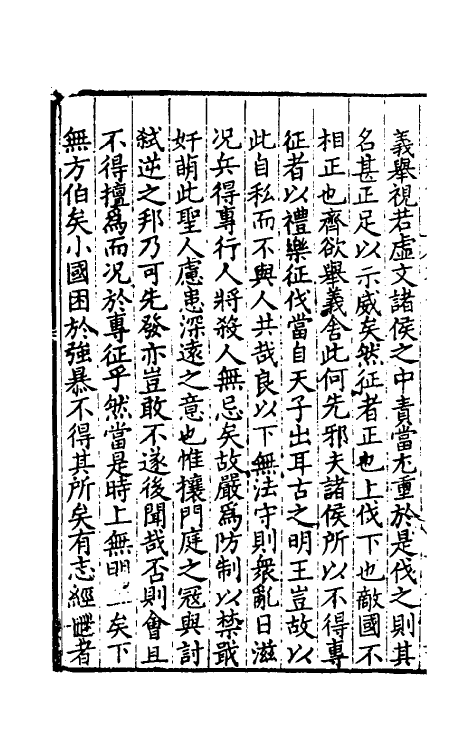 義舉視若虛文諸侯之中責當尤重於是伐之則其
名甚正足以示威矣然征者正也上伐下也敵國不
相正也齊欲舉義舍此何先邪夫諸侯所以不得專
征者以禮樂征伐當自天子出耳古之明王豈故以
此自私而不與人共哉良以下無法守則衆亂日滋
况兵得專行人將殺人無忌矣故嚴爲防制以禁戢
奸萌此聖人慮患深遠之意也惟攘門庭之冦與討
弑逆之邦乃可先發亦豈敢不遂後聞哉否則會且
不得擅爲而况於專征乎然當是時上無明矣下
無方伯矣小國困於強暴不得其所矣有志經者